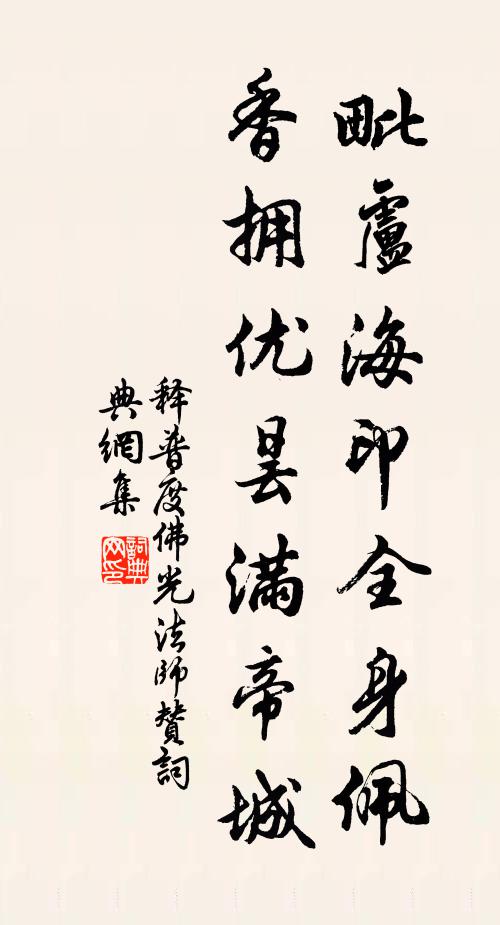 毗盧海印全身佩
香拥优昙滿帝城
释普度佛光法師赞詞
典網集
詞典网印